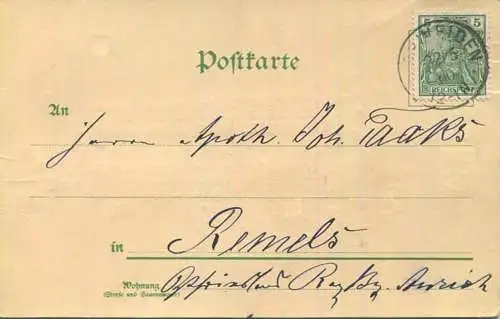 5 5
HEIDEN
REICHSPOST
Postkarte
An
Herrn Apoth. Joh. Taaks
in Remels
Wohnung
(Straße und Hausnummer)
Ostfriesland Rgz. Bz. Aurich